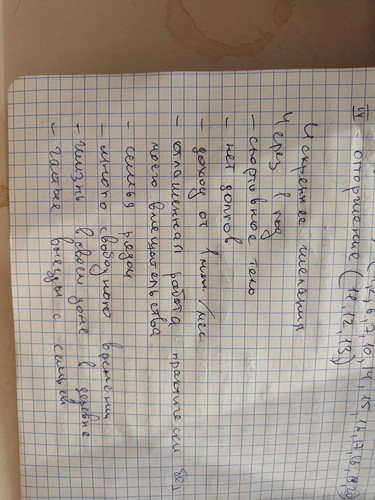 6, 7, 10, 14, 15,
IV - отторжение (11, 12, 13)
Искренние желания
Через 1 год
- спортивное тело
- нет долгов
- доход от 1 млн/мес
- отлаженная работа практически без
моего вмешательства
- семья рядом
- много свободного времени
- жизнь в своем доме в деревне
- также выезды с семьей